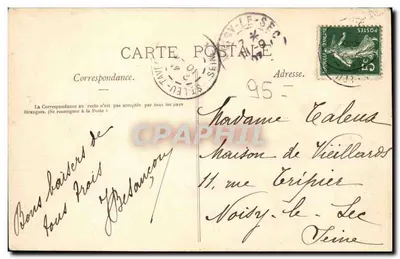 CARTE POSTALE
Correspondance.
Adresse.
La Correspondance au recto n'est pas acceptée par tous les pays
étrangers. (Se renseigner à la Poste)
95-
NOISY-LE-SEC
ST LEU-TAVERNY
Bons baisers de
tous trois
Besançon
Madame Taleus
Maison de Vieillards
11, rue Tripier
Noisy-le-Sec
Seine
Carte-Postale
POSTES